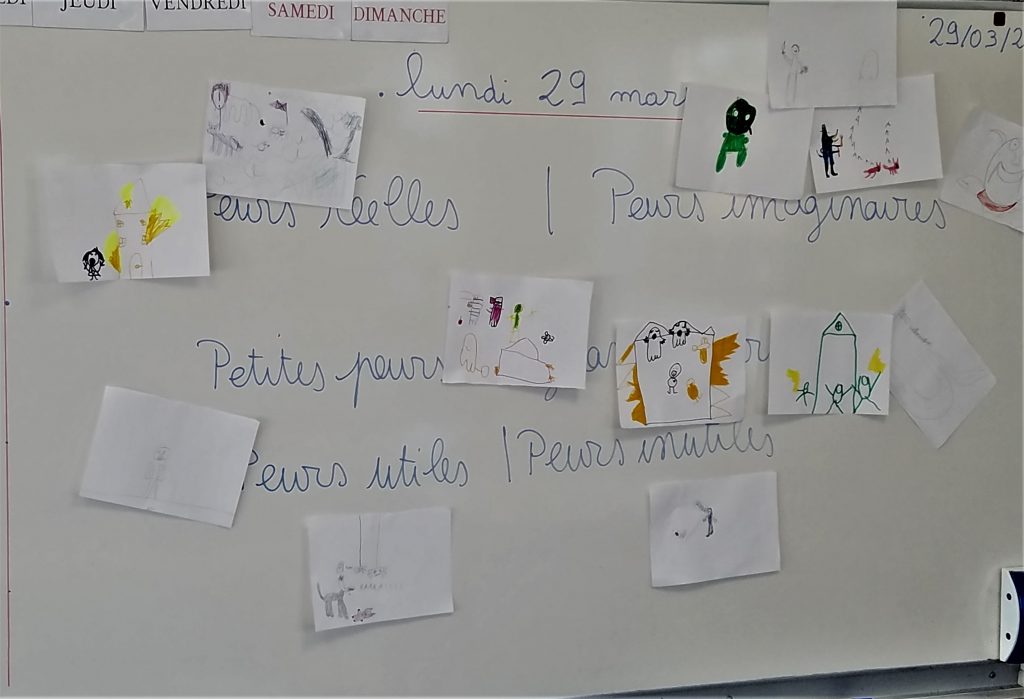 JEUDI VENDREDI SAMEDI DIMANCHE
29/03/2
. lundi 29 mar
Peurs réelles | Peurs imaginaires
Petites peurs
Peurs utiles | Peurs inutiles